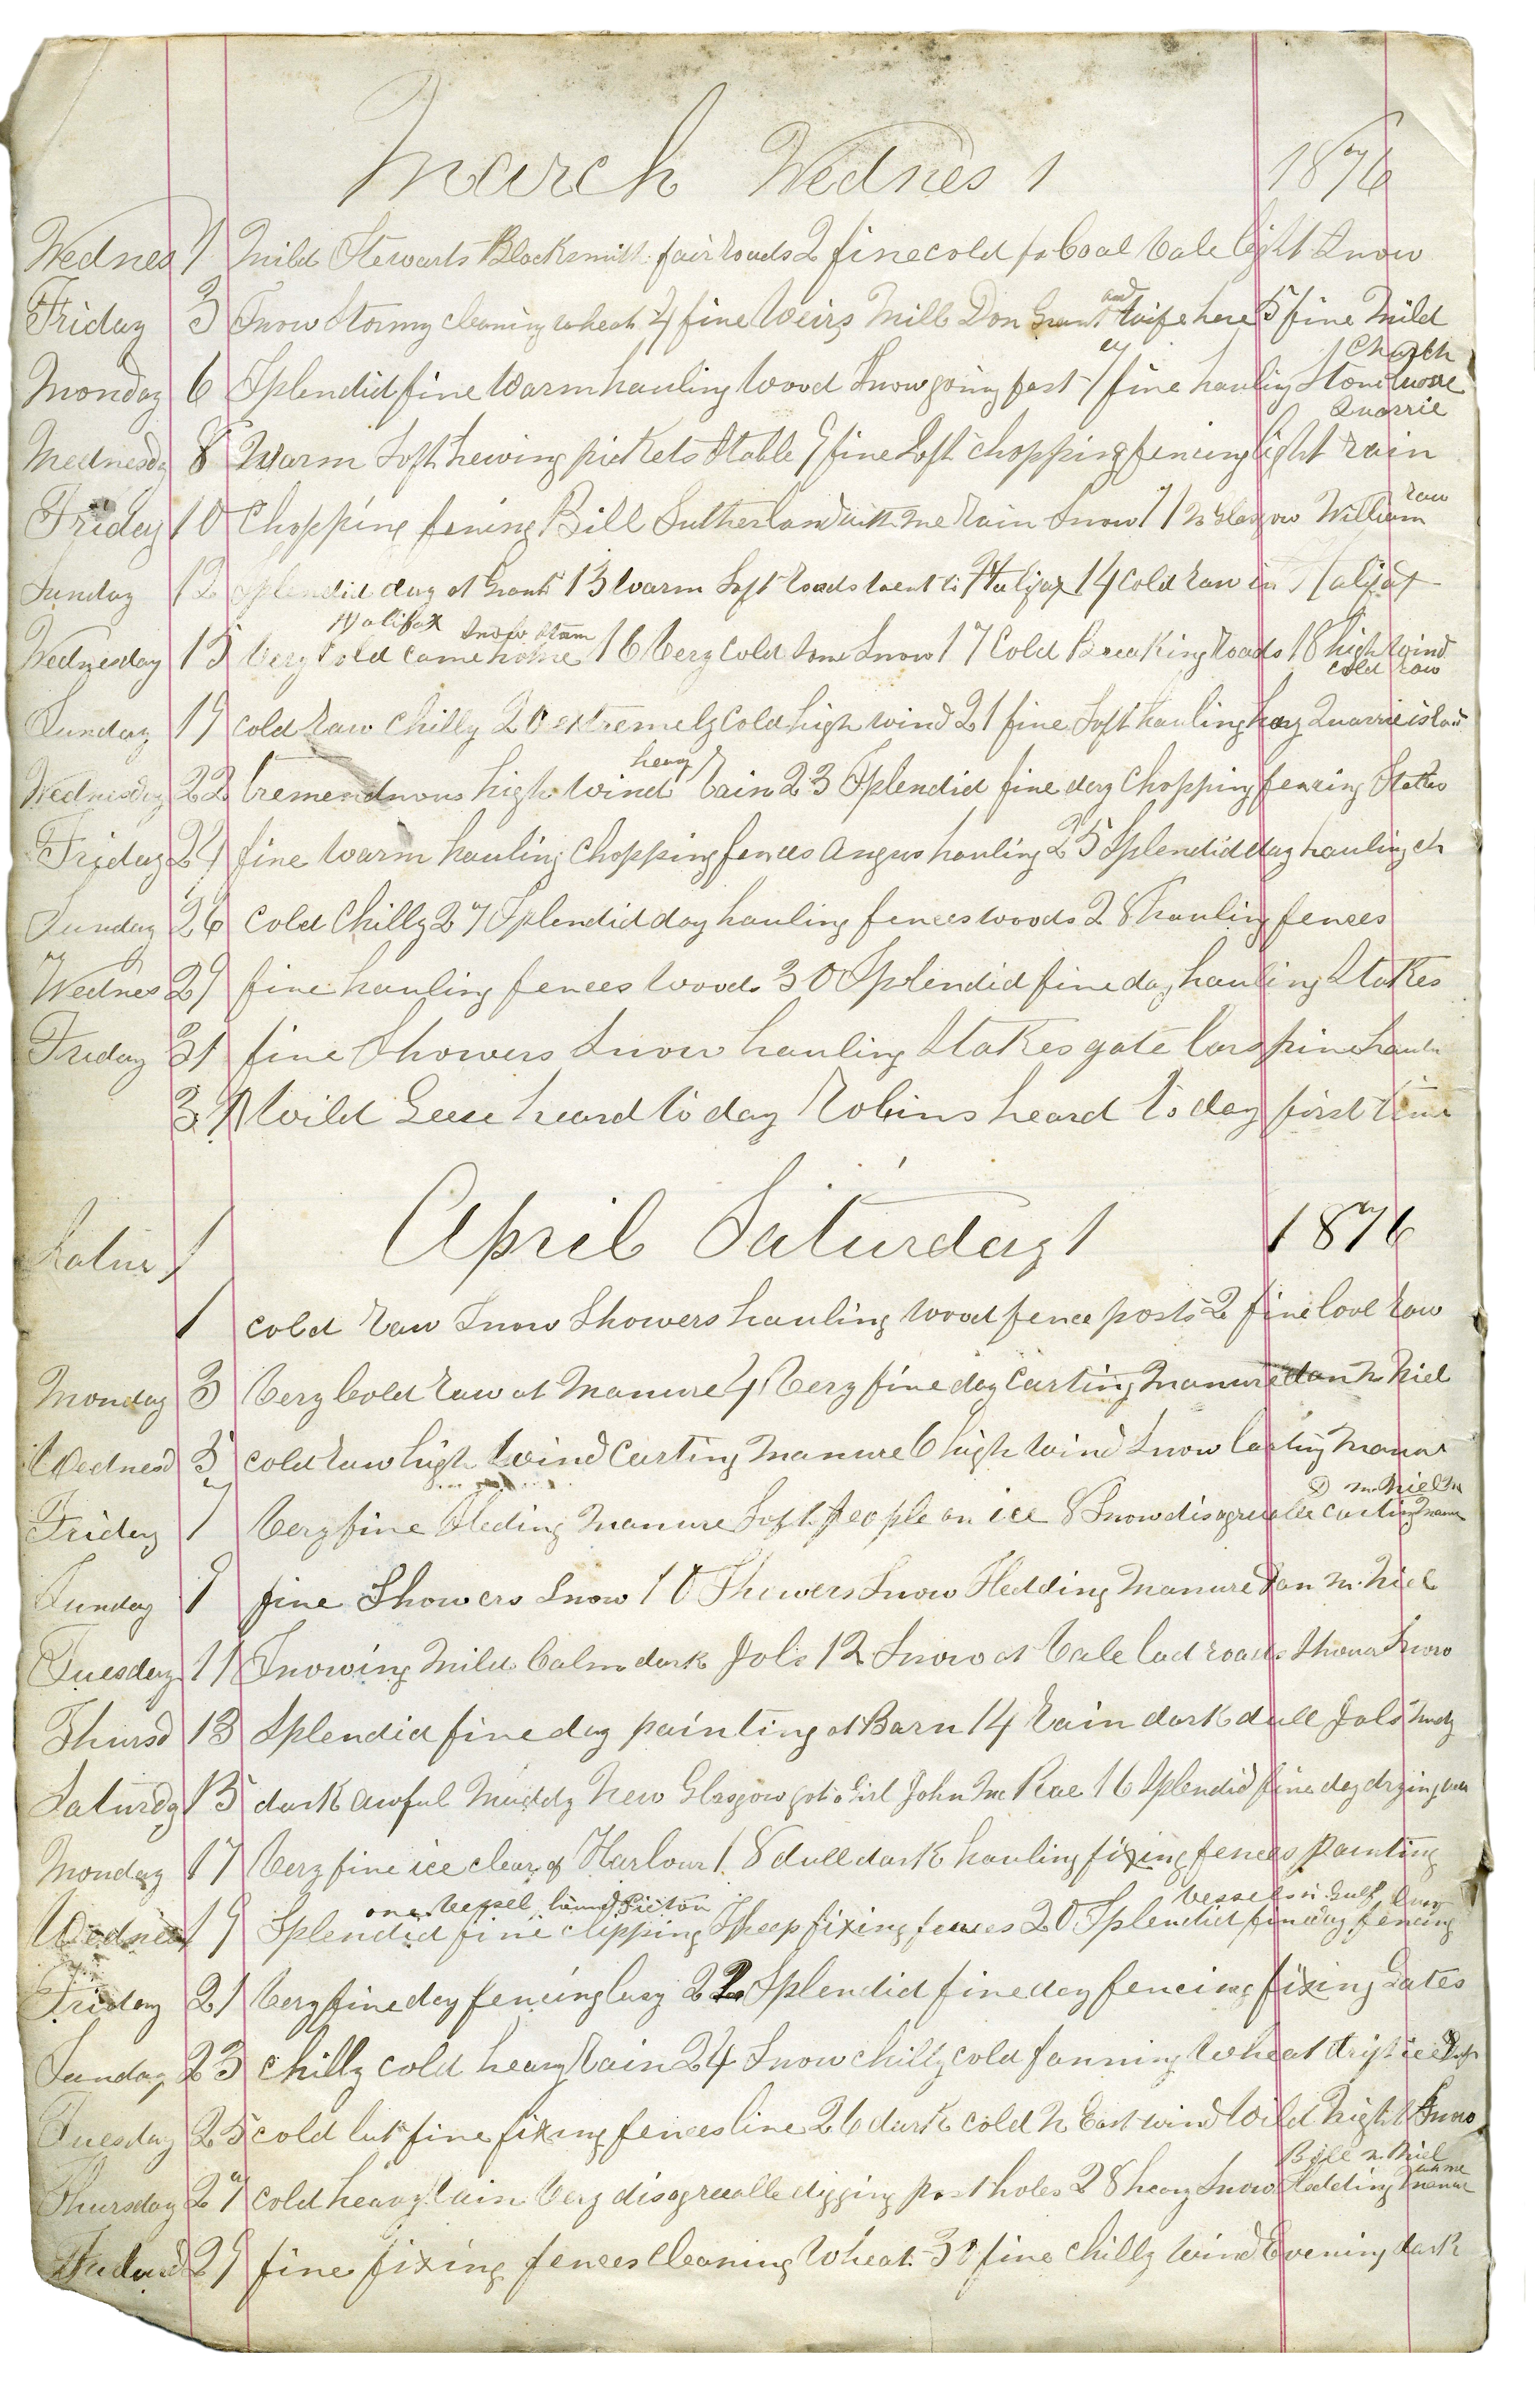 March Wednes 1 1876
Wednes 1 Mild Stewarts Blacksmith fair roads 2 fine cold for Coal Vale light Snow
Friday 3 Snow Stormy cleaning wheat 4 fine Weirs Mill Don Grant and wife here 5 fine Mild
church
Monday 6 Splendid fine Warm hauling Wood Snow going fast 7 fine hauling Stone
Quarrie
Wednesda 8 Warm Soft hewing pickets Stable 9 fine Soft chopping fencing light rain
raw
Friday 10 Chopping fening Bill Sutherland with me rain Snow 11 N Glasgow William
Sunday 12 Splendid day at Grants 13 Warm Soft roads went to Halifax 14 Cold raw in Halifax
Halifax Snow Storm
Wednesday 15 Very Cold came home 16 Very Cold Some Snow 17 Cold Breaking roads 18 high Wind
cold raw
Sunday 19 cold raw chilly 20 extremely cold high wind 21 fine Soft hauling hay Quarrie island
heavy
Wednesday 22 tremendnous high Wind rain 23 Splendid fine day Chopping fencing Stakes
Friday 24 fine Warm hauling Chopping fences Angus hauling 25 Splendid day hauling
Sunday 26 Cold Chilly 27 Splendid day hauling fences woods 28 hauling fences
Wednes 29 fine hauling fences Woods 30 Splendid fine day hauling Stakes
Friday 31 fine Showers Snow hauling Stakes gate bars
31 Wild Geese heard to day Robins heard to day first time
April Saturday 1 1876
Satur 1
1 cold raw Snow Showers hauling wood fence posts 2 fine Cool raw
Monday 3 Very Cold raw at Manure 4 Very fine day Carting Manure dan Mc Niel
Wednesd 5 cold raw high Wind Carting Manure 6 high Wind Snow Carting Manur
D McNiel
Friday 7 Very fine Sleding Manure Soft people on ice 8 Snow disagreeable carting
Sunday 9 fine Showers Snow 10 Showers Snow Sledding Manure Dan Mc Niel
Tuesday 11 Snowing Mild Calm dark Jobs 12 Snow at Vale bad roads Snow
Thursd 13 Splendid fine day painting at Barn 14 Rain dark dull Jobs Mudy
Saturdy 15 dark awful Muddy New Glasgow got a Girl John Mc Rae 16 Splendid fine day drying
Monday 17 Very fine ice clear of Harbour 18 dull dark hauling fixing fences painting
one Vessel bound Pictou Vessels in Gulf
Wednes 19 Splendid fine clipping Sheep fixing fences 20 Splendid fine day fencing
Friday 21 Very fine day fencing busy 22 Splendid fine day fencing fixing Gates
Sunday 23 chilly cold heavy rain 24 Snow chilly cold fanning Wheat drift ice
Tuesday 25 cold but fine fixing fences line 26 dark cold N East wind Wild Night Snow
Bill Mc Niel
Thursday 27 cold heavy rain Very disagreeable digging post holes 28 heavy Snow Sledding manure
29 fine fixing fences Cleaning Wheat 30 fine chilly Wind Evening dark